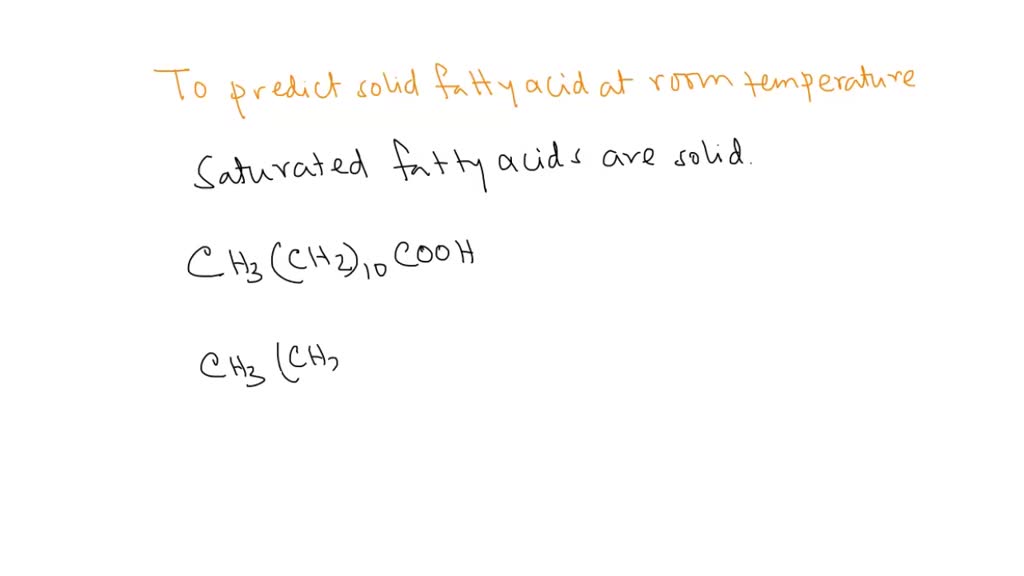 To predict solid fatty acid at room temperature
Saturated fatty acids are solid.
CH3(CH2)10COOH
CH3(CH2